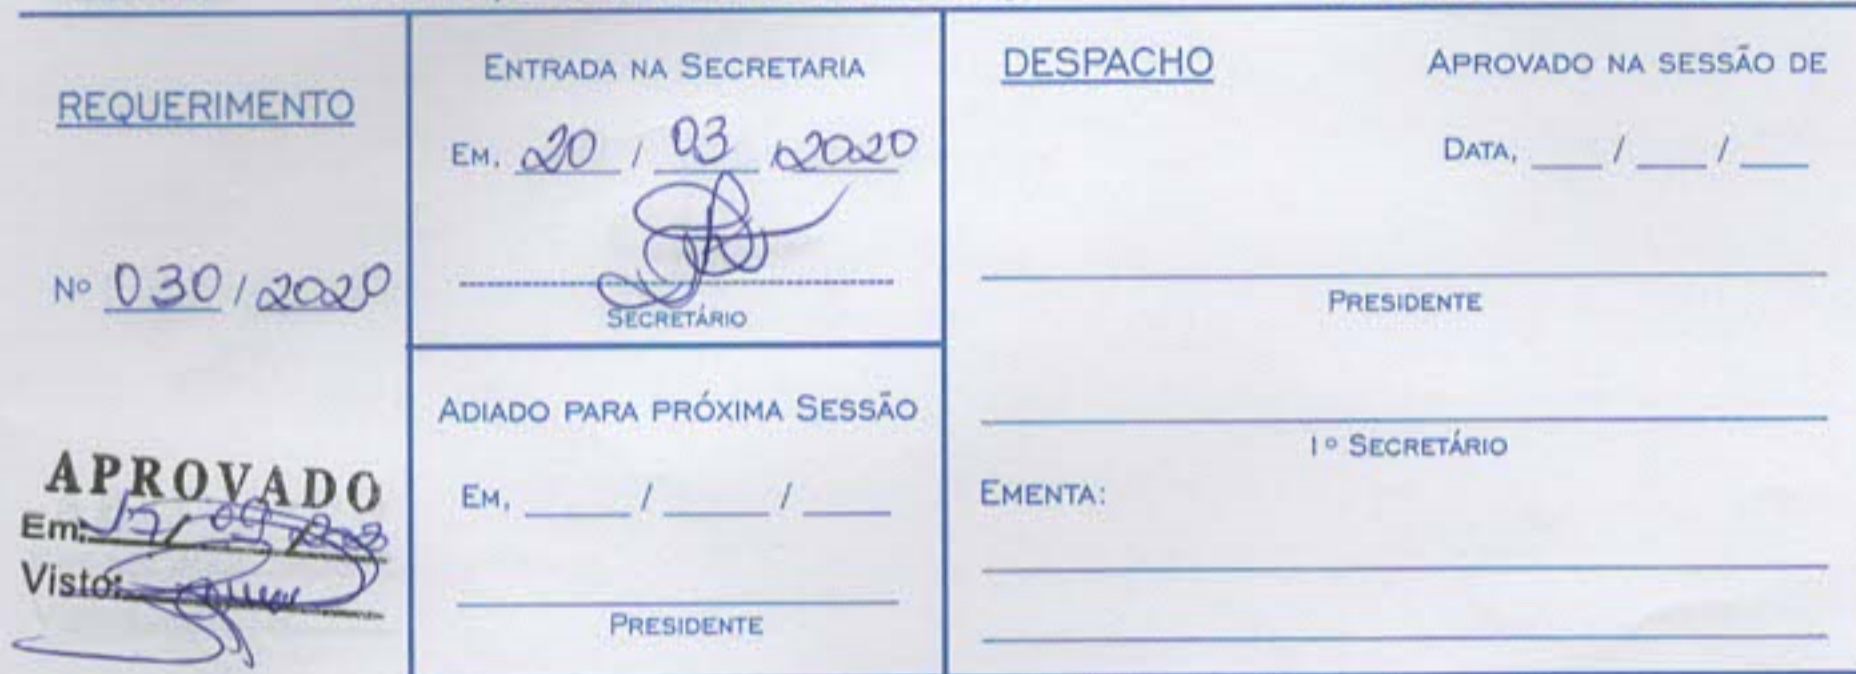 REQUERIMENTO
Nº 030 / 2020
APROVADO
Em: 17 / 09 /
Visto:
ENTRADA NA SECRETARIA
EM, 20 / 03 / 2020
SECRETÁRIO
ADIADO PARA PRÓXIMA SESSÃO
EM, ____ / ____ / ____
PRESIDENTE
DESPACHO
APROVADO NA SESSÃO DE
DATA, ____ / ____ / ____
PRESIDENTE
1º SECRETÁRIO
EMENTA: